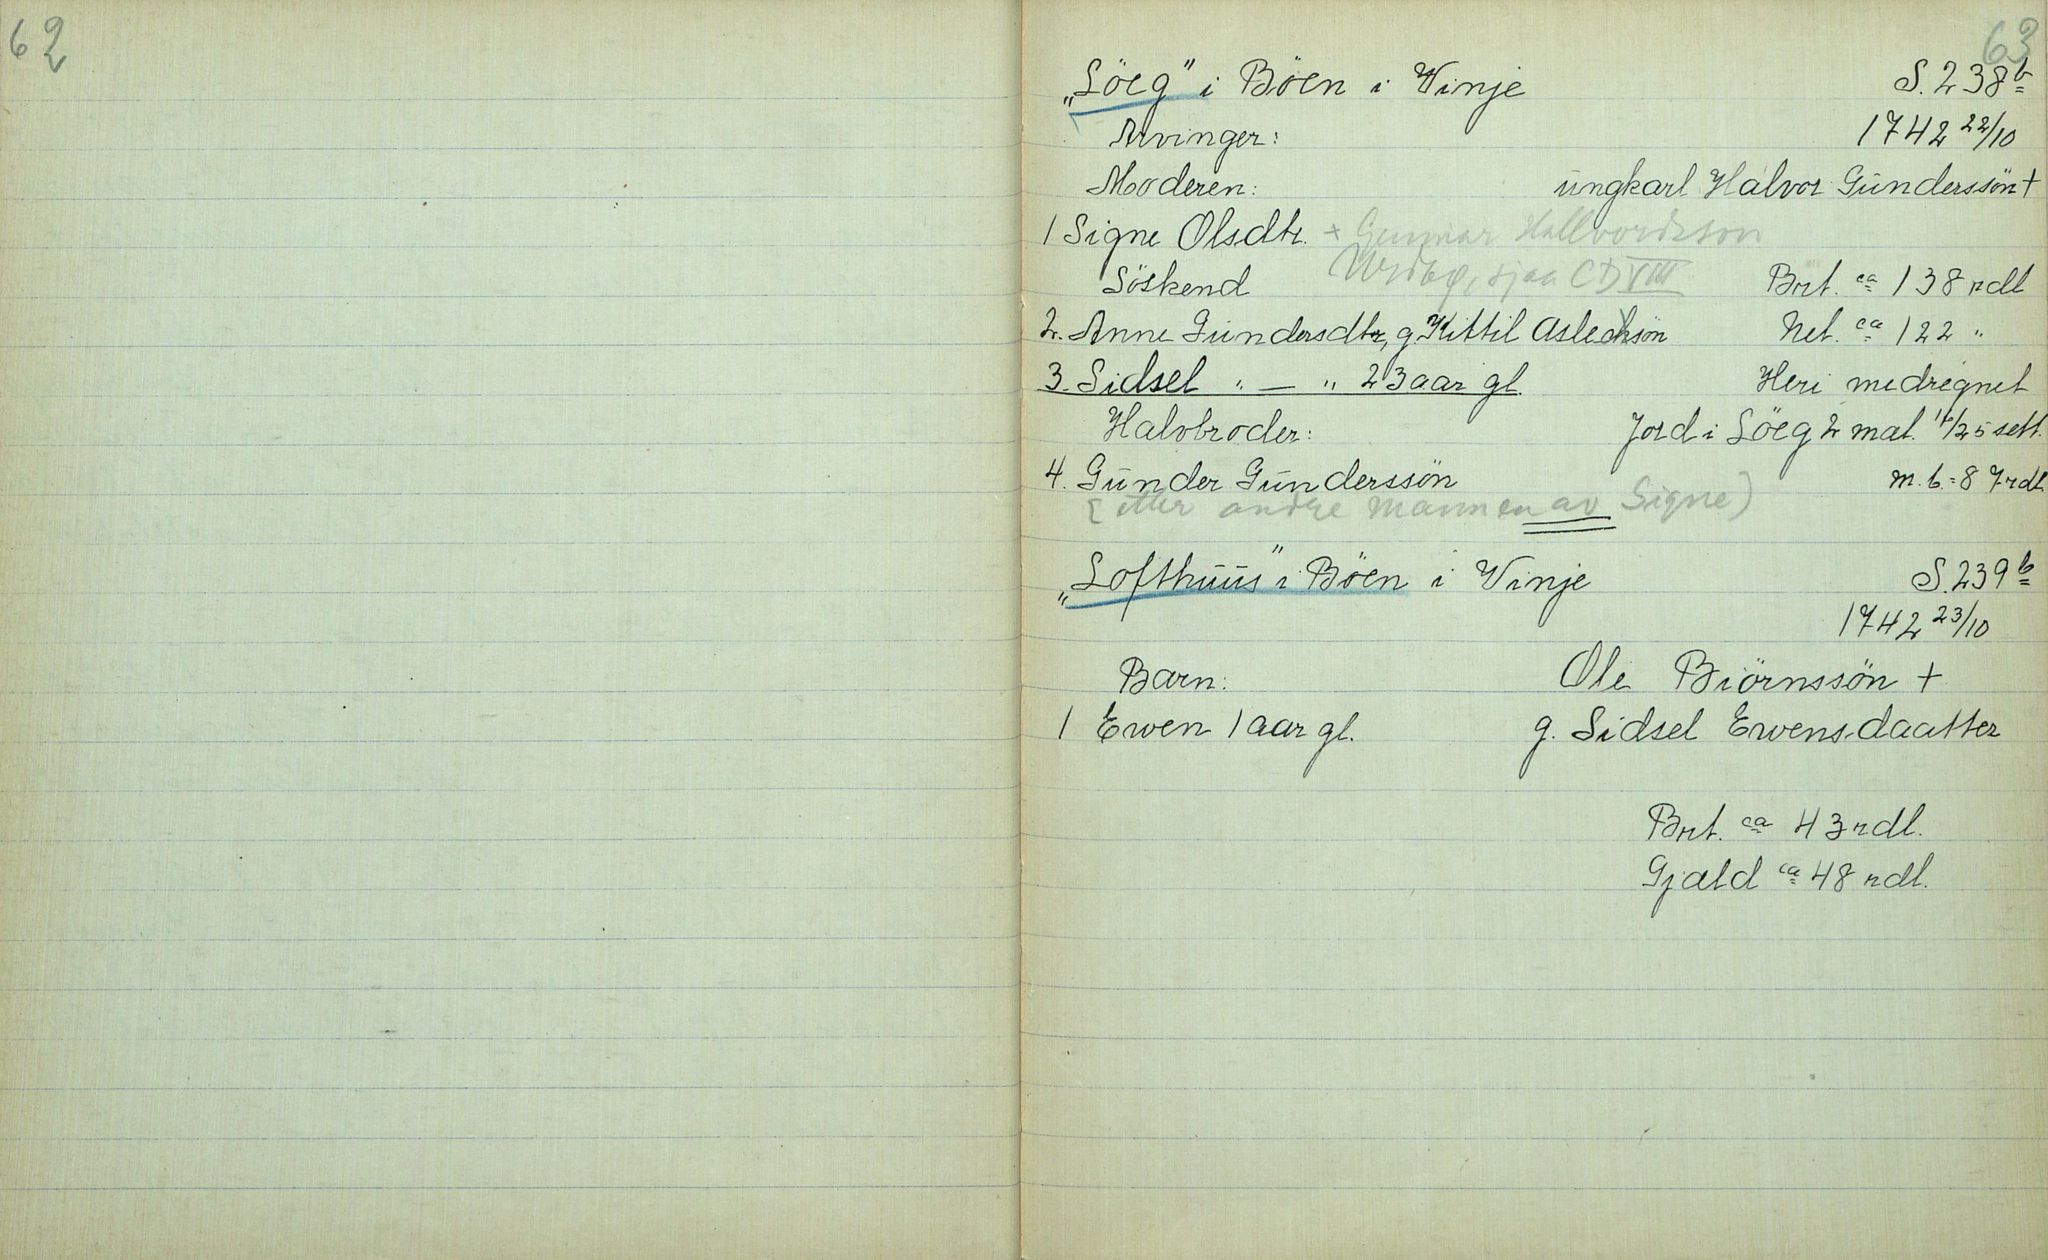 62
63
„Löeg" i Böen i Vinje S. 238b
Arvinger: 1742 22/10
Moderen: ungkarl Halvor Gunderssön +
1 Signe Olsdtr. + Gunnar Hallvordsson
sjaa CD VIII
Söskend Brt. ca 138 rdl
2. Anne Gundersdtr, g. Kittil Aslechsön Net. ca 122 "
3. Sidsel " — " 23 aar gl. Heri medregnet
Halvbroder: Jord i Löeg 2 mal. sett.
4. Gunder Gunderssön m. b. = 87 rdl
(etter andre mannen av Signe)
„Lofthuus" i Böen i Vinje S. 239b
1742 23/10
Barn: Ole Biörnssön +
1 Ewen 1 aar gl. g. Sidsel Ewensdaatter
Brt. ca 43 rdl.
Gjæld ca 48 rdl.